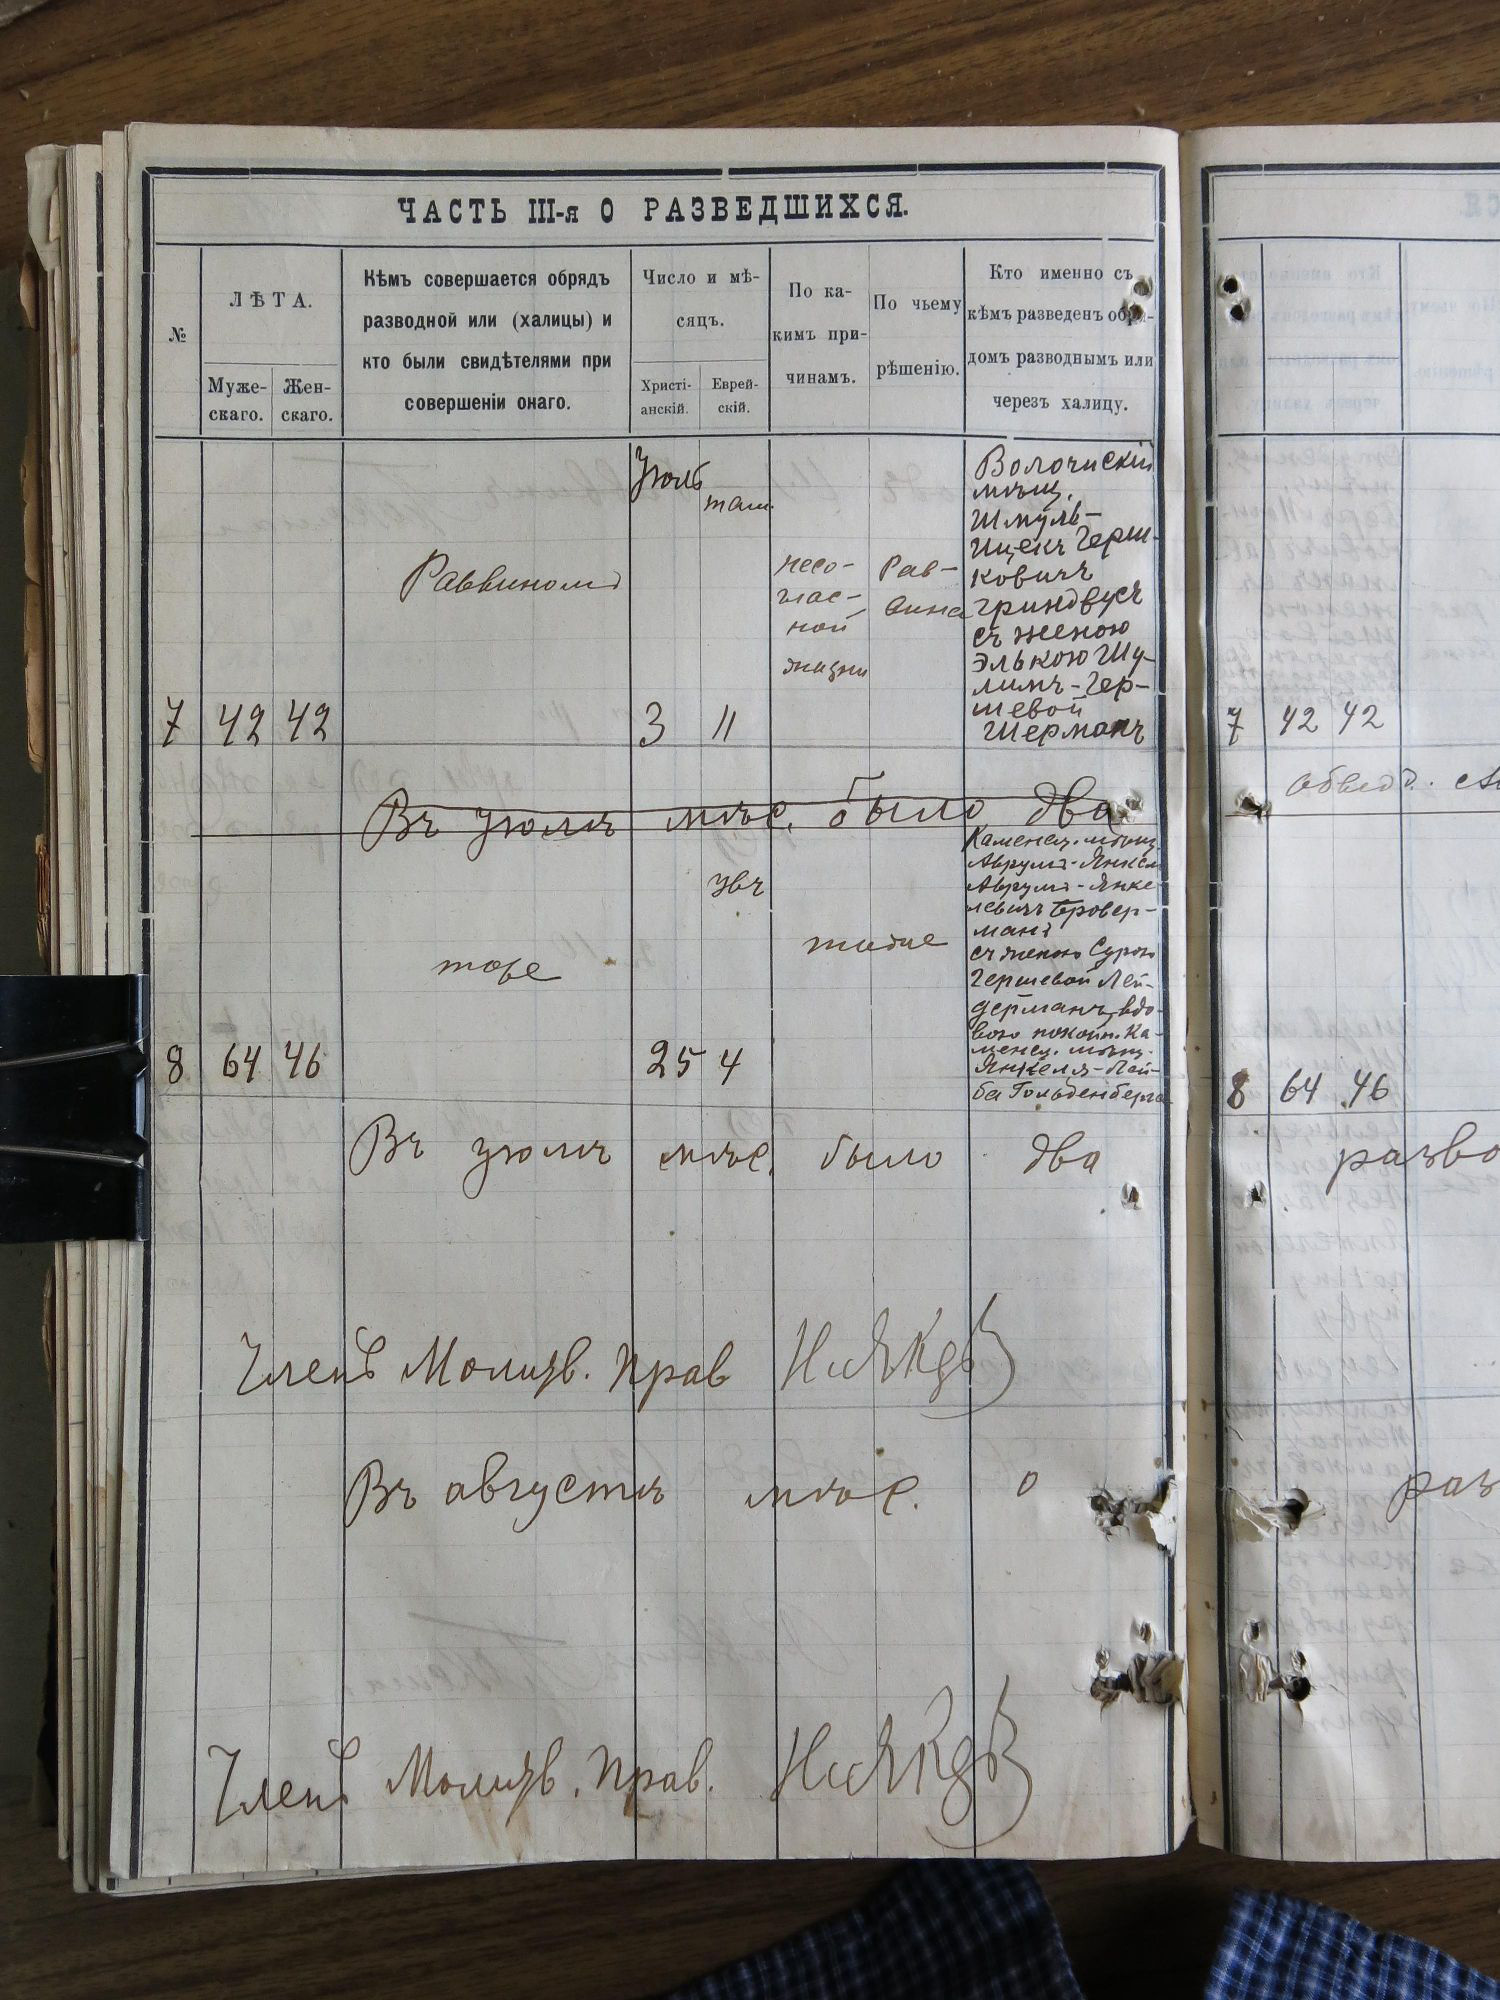 ЧАСТЬ III-я О РАЗВЕДШИХСЯ.
№
ЛѢТА.
Муже-
скаго.
Жен-
скаго.
Кѣмъ совершается обрядъ
разводной или (халицы) и
кто были свидѣтелями при
совершеніи онаго.
Число и мѣ-
сяцъ.
Христі-
анскій.
Еврей-
скій.
По ка-
кимъ при-
чинамъ.
По чьему
рѣшенію.
Кто именно съ
кѣмъ разведенъ обря-
домъ разводнымъ или
черезъ халицу.
7
42
42
Раввиномъ
Июль
3
там.
11
несо-
глас-
ной
жизни
Рав-
вина
Волочискій
мѣщ.
Шмуль-
Ицекъ Герш-
ковичъ
Гриндвусъ
съ женою
Элькою Шу-
лимъ-Гер-
шевой
Шерманъ
Въ июлѣ мѣс. было два
8
64
46
тоже
25
увъ
4
тоже
Каменец. мѣщ.
Аврумъ-Янкель
Аврумъ-Янке-
левичъ Бровер-
манъ
съ женою Сурою
Гершевой Лей-
дерманъ, вдо-
вою покойн. Ка-
менец. мѣщ.
Янкеля-Лей-
ба Гольденберга
Въ июлѣ мѣс. было два
Членъ Молитв. Прав
Въ августѣ мѣс. 0
Членъ Молитв. Прав.
7
42
42
8
64
46
разво
раз